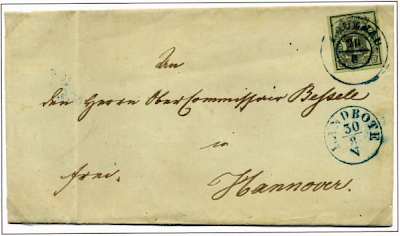 An
den Herrn Ober Commissair Bessele
in
frei.
Hannover.
LANDBOTE
30
8
V